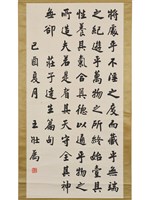 將處乎不淫之度而藏乎無端
之紀遊乎萬物之所終始壹其
性養其氣合其德以通乎物之
所造夫若是者其天守全其神
無郤 莊子達生篇句
己酉夏月 王壯為